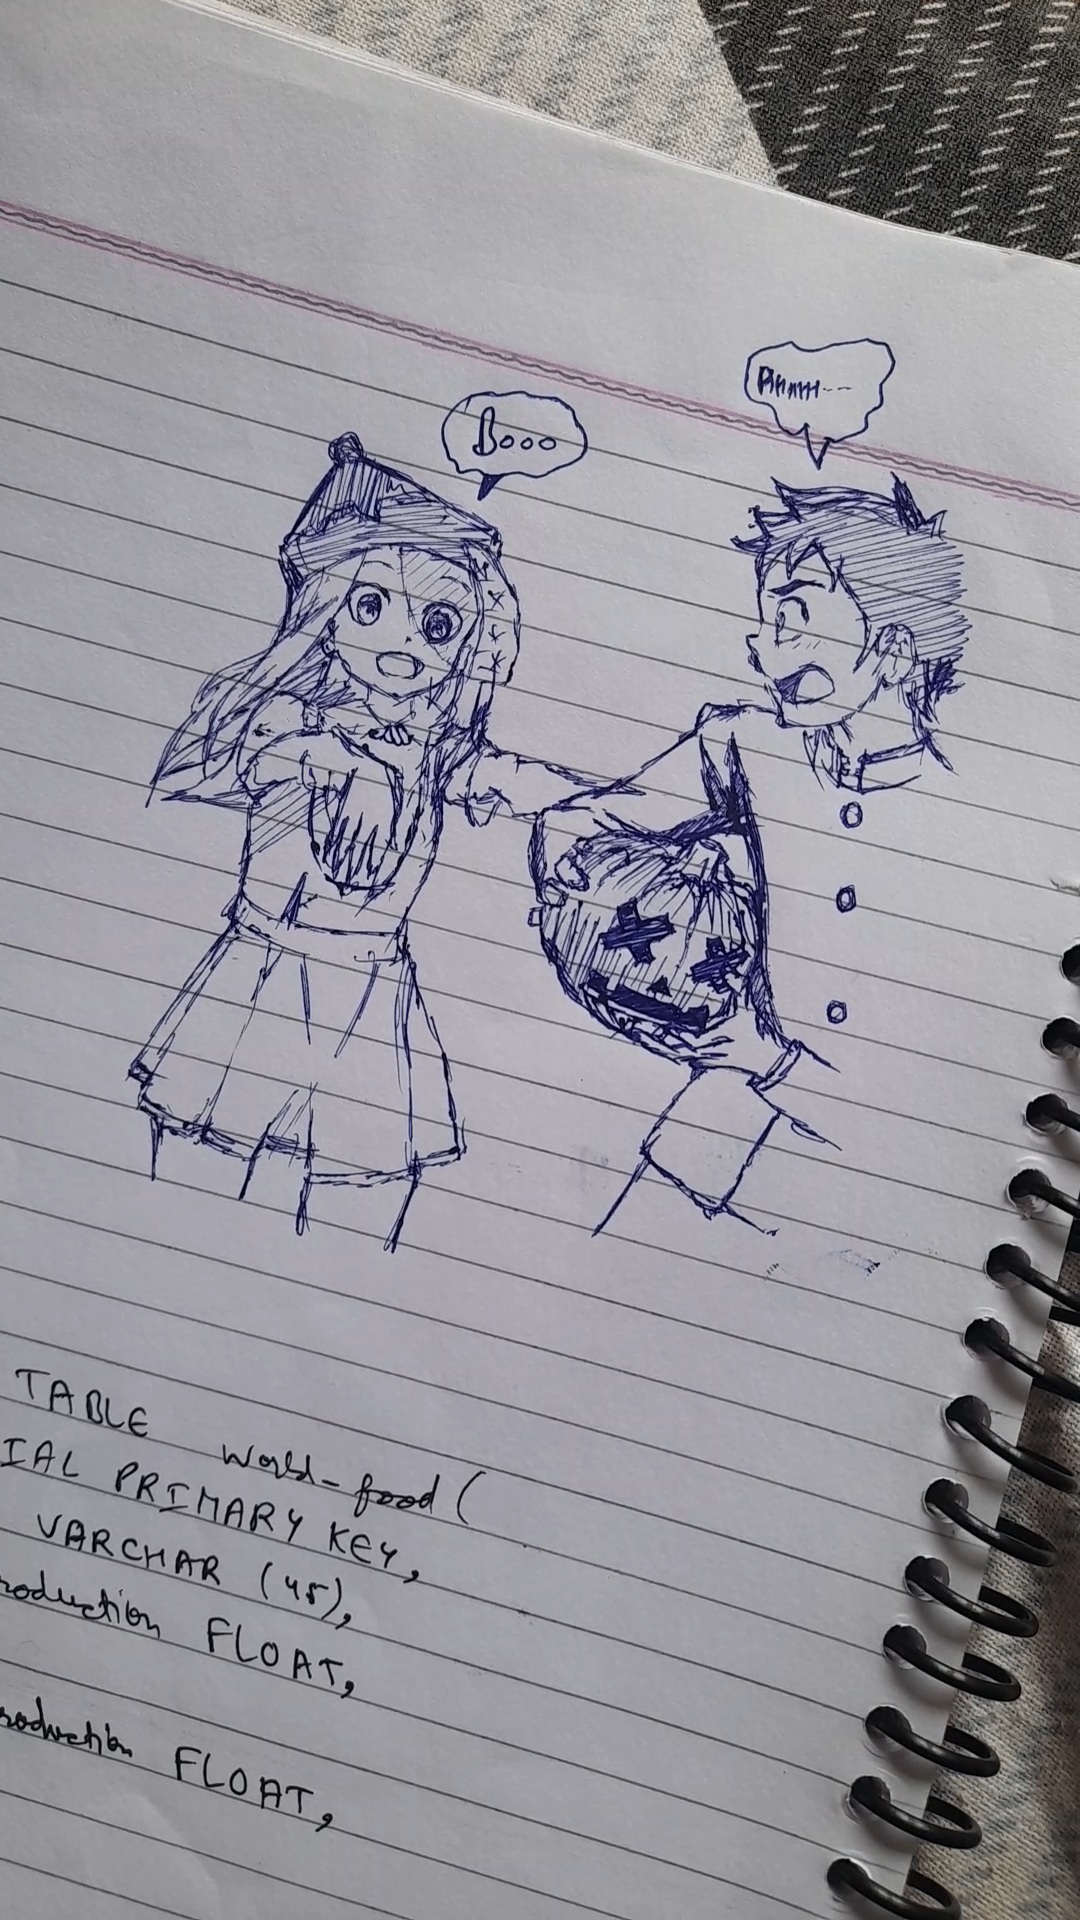 Booo
Ahhhh---
TABLE world-food (
IAL PRIMARY KEY,
VARCHAR (45),
roduction FLOAT,
roduction FLOAT,